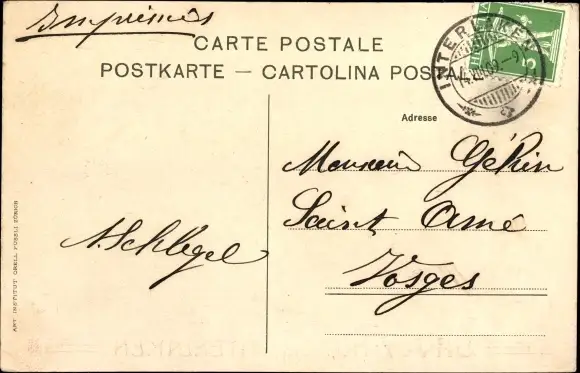 Imprimés
CARTE POSTALE
POSTKARTE — CARTOLINA POSTALE
INTERLAKEN
HELVETIA
5
Adresse
Monsieur Gékin
Saint Amé
Vosges
A. Schlegel
ART. INSTITUT ORELL FÜSSLI ZÜRICH